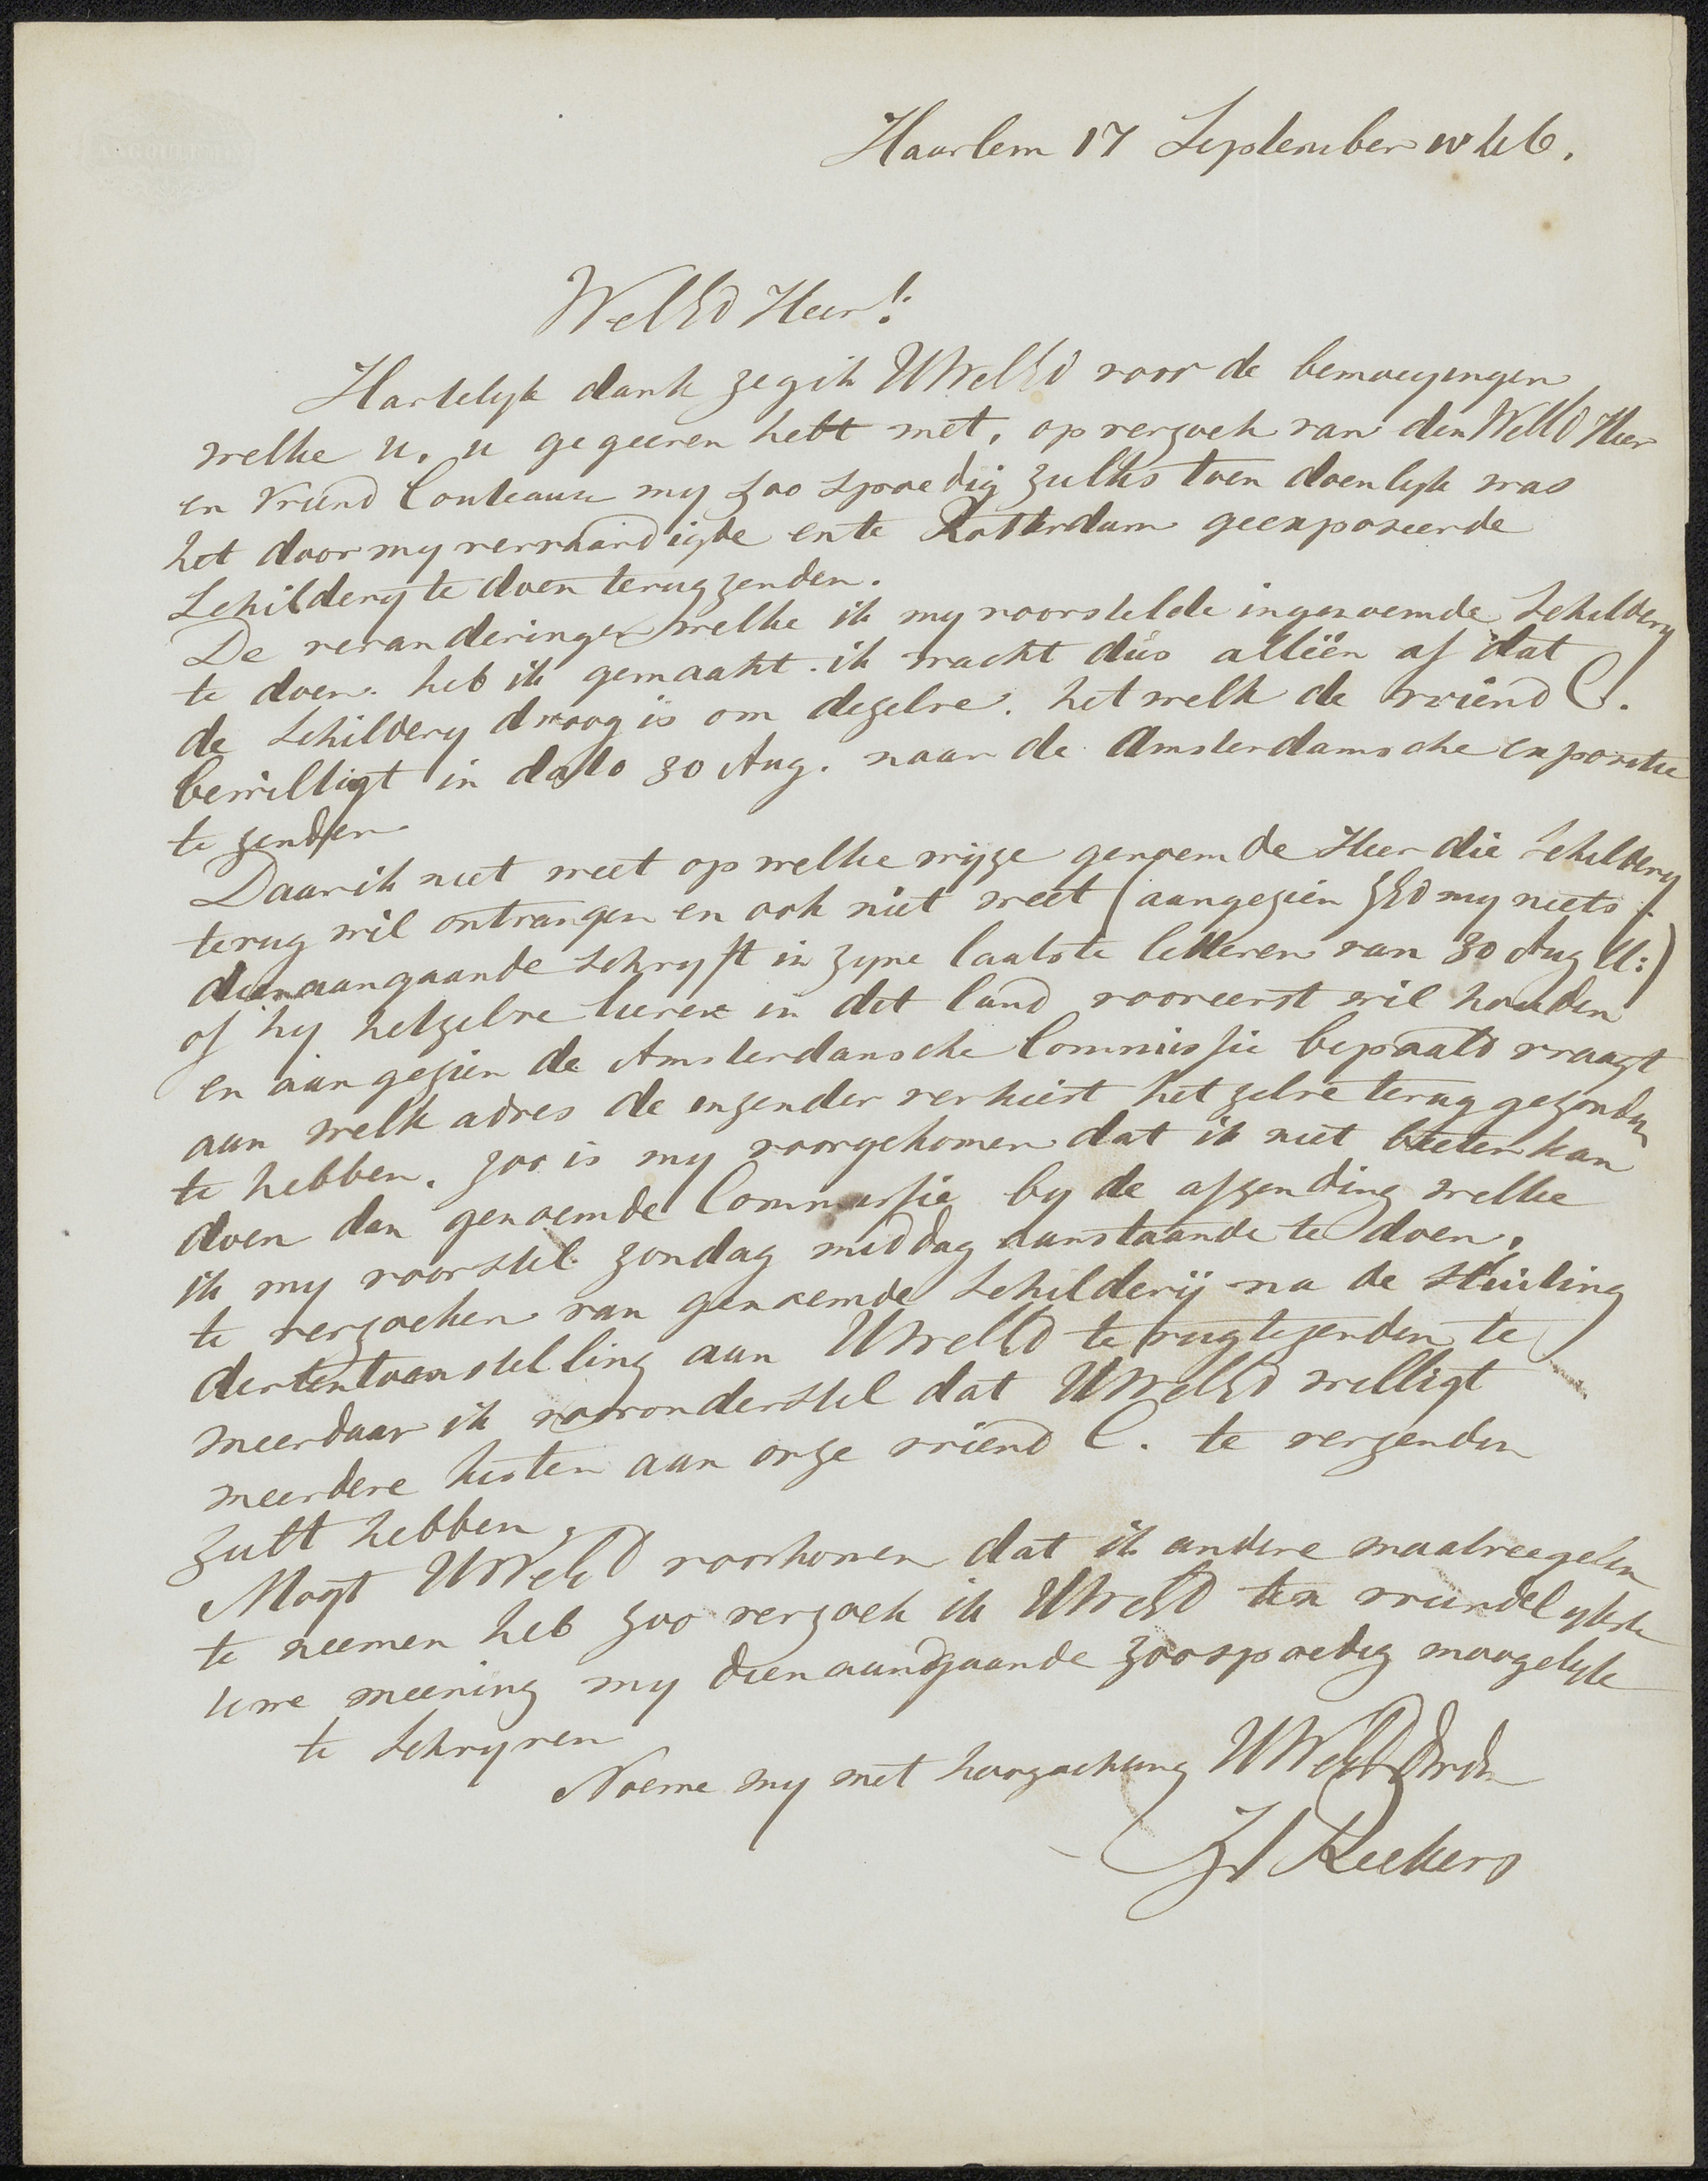 Haarlem 17 September 1846.
WelEd Heer!
Hartelyk dank zeg ik UWelEd voor de bemoeyingen
welke u, u gegeeven hebt met, op verzoek van den WelEd Heer
en Vriend Couteaux my zoo spoedig zulks toen doenlyk was
het door my vervaardigde en te Rotterdam geexposeerde
Schildery te doen terugzenden.
De veranderingen welke ik my voorstelde in genoemde Schildery
te doen. heb ik gemaakt. ik wacht dus alleen af dat
de Schildery droog is om dezelve. het welk de vriend C.
bewilligt in dato 30 Aug. naar de Amsterdamsche expositie
te zenden
Daar ik niet weet op welke wijze genoemde Heer die Schildery
terug wil ontvangen en ook niet weet (aangezien ZEd my niets
dienaangaande schryft in zyne laatste letteren van 30 Aug ll:)
of hy hetzelve liever in dit land vooreerst wil houden
en aangezien de Amsterdamsche Commissie bepaald vraagt
aan welk adres de inzender verkiest hetzelve terug gezonden
te hebben, zoo is my voorgekomen dat ik niet beeter kan
doen dan genoemde Commissie by de afzending welke
ik my voorstel zondag middag aanstaande te doen,
te verzoeken van genoemde Schilderij na de sluiting
der tentoonstelling aan UWelEd terug te zenden te
meer daar ik vooronderstel dat UWelEd welligt
meerdere kisten aan onze vriend C. te verzenden
zult hebben,
Mogt UWelEd voorkomen dat ik andere maatreegelen
te neemen heb zoo verzoek ik UWelEd ten vriendelykste
uwe meening my dienaangaande zoo spoedig moogelyk
te schryven
Noeme my met hoogachting UWelEd
Reekers